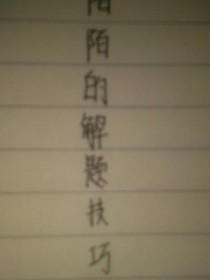 陌的解题技巧